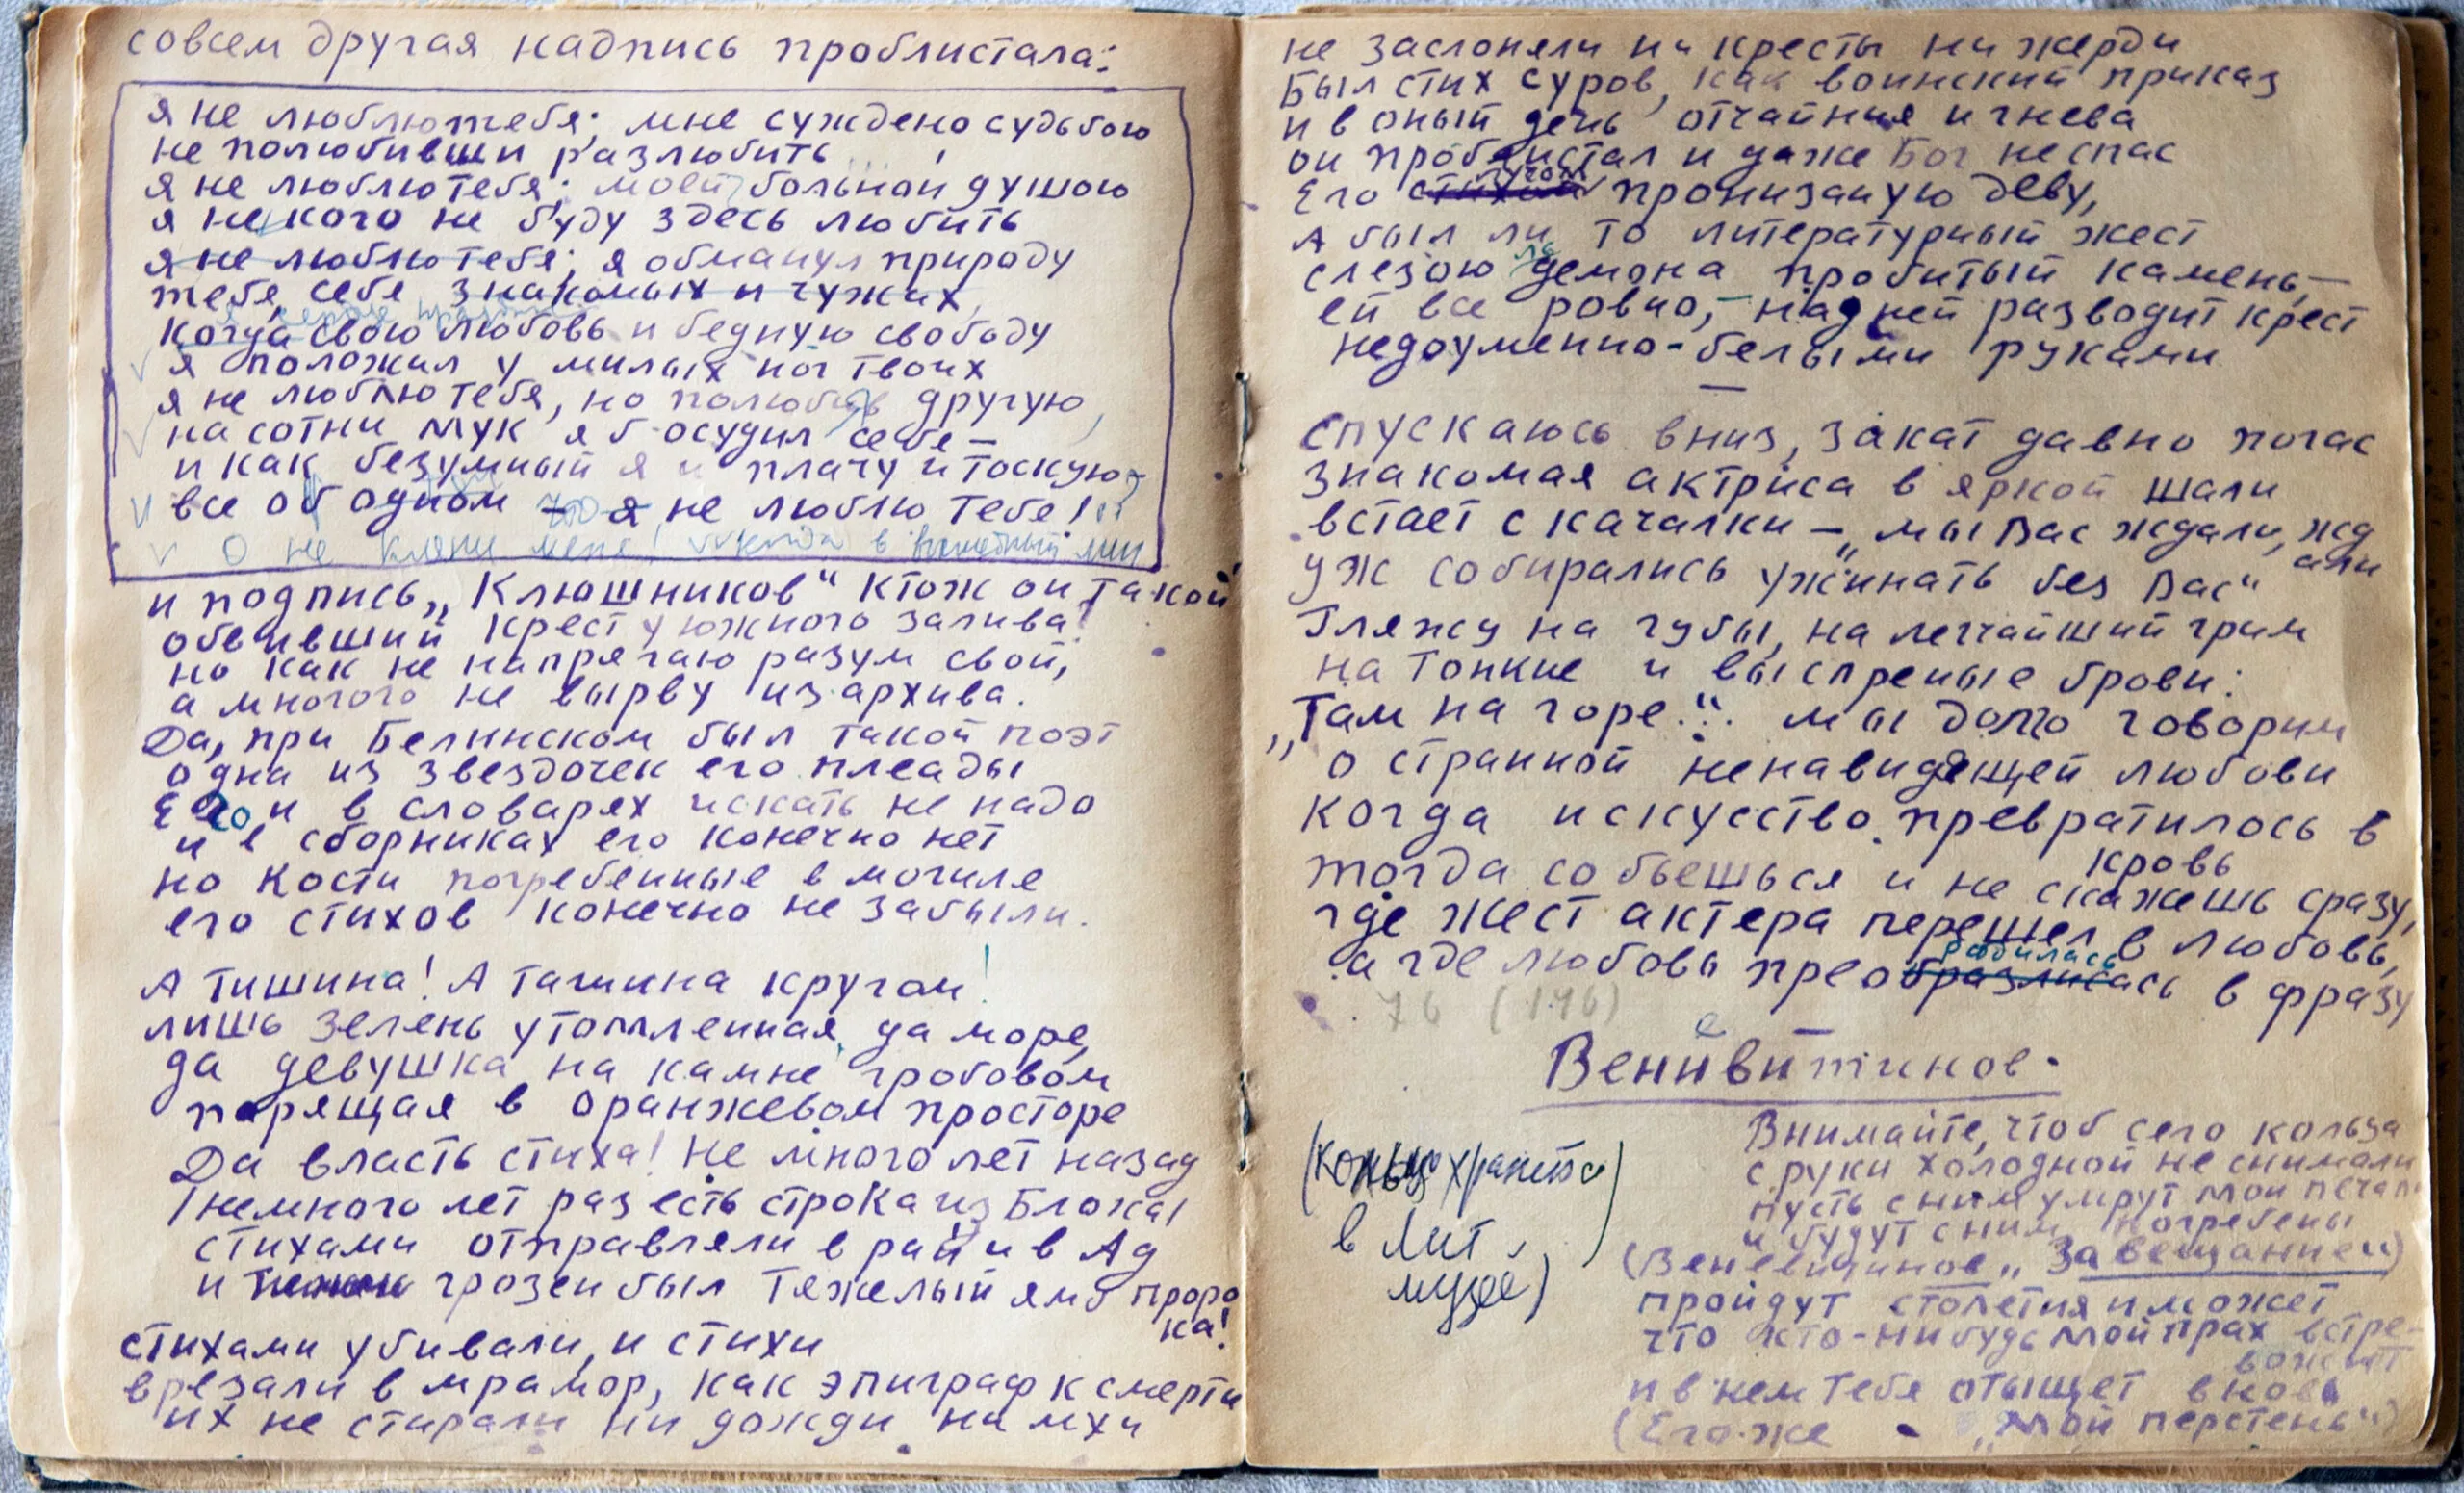 совсем другая надпись проблистала:
я не люблю тебя; мне суждено судьбою
не полюбивши разлюбить
я не люблю тебя; моей больной душою
я не кого не буду здесь любить
я не люблю тебя; я обманул природу
тебя, себя знакомых и чужих
когда свою любовь и бедную свободу
я положил у милых ног твоих
я не люблю тебя, но полюбив другую,
на сотни мук я б осудил себя —
и как безумный я и плачу и тоскую
все об одном — я не люблю тебя!
О не кляни меня!
и подпись „Клюшников“ Кто ж он такой
обвивший крест у южного залива!
но как не напрягаю разум свой,
а многого не вырву из архива.
Да, при Белинском был такой поэт
одна из звездочек его плеады
Его и в словарях искать не надо
и в сборниках его конечно нет
но Кости погребенные в могиле
его стихов конечно не забыли.
А тишина! А тишина кругом!
лишь зелень утомленная, да море,
да девушка на камне гробовом
парящая в оранжевом просторе
Да власть стиха! Не много лет назад
(немного лет раз есть строка из Блока)
стихами отправляли в рай и в Ад
и грозен был Тяжелый ямб проро
ка!
стихами убивали, и стихи
врезали в мрамор, как эпиграф к смерти
их не стирали ни дожди ни мхи
не заслоняли ни кресты ни жерди
Был стих суров, как воинский приказ
и в оный день отчаяния и гнева
он проблистал и даже Бог не спас
лучом
Его стихом пронизаную деву,
А был ли то литературный жест
ль
слезою демона пробитый камень, —
ей все ровно, — над ней разводит крест
недоуменно-белыми руками
—
спускаюсь вниз, закат давно погас
знакомая актриса в яркой шали
встает с качалки — „мы Вас ждали, жд
али
уж собирались ужинать без Вас“
Гляжу на губы, на легчайший грим
на тонкие и выспреные брови:
„Там на горе..“. мы долго говорим
о странной ненавидящей любови
когда искусство превратилось в
кровь
тогда собьешься и не скажешь сразу,
где жест актера перешел в любовь,
родилась
а где любовь преобразилась в фразу
76 (176)
е
Венивитинов.
Внимайте, чтоб сего кольца
с руки холодной не снимали
пусть с ним умрут мои печали
и будут с ним погребены
(Веневитинов „Завещание“)
(Кольцо хранится)
в Лит.
музее)
пройдут столетия и может
что кто-нибудь мой прах встре-
вожит
и в нем тебя отыщет вновь
(Его же - „Мой перстень“)